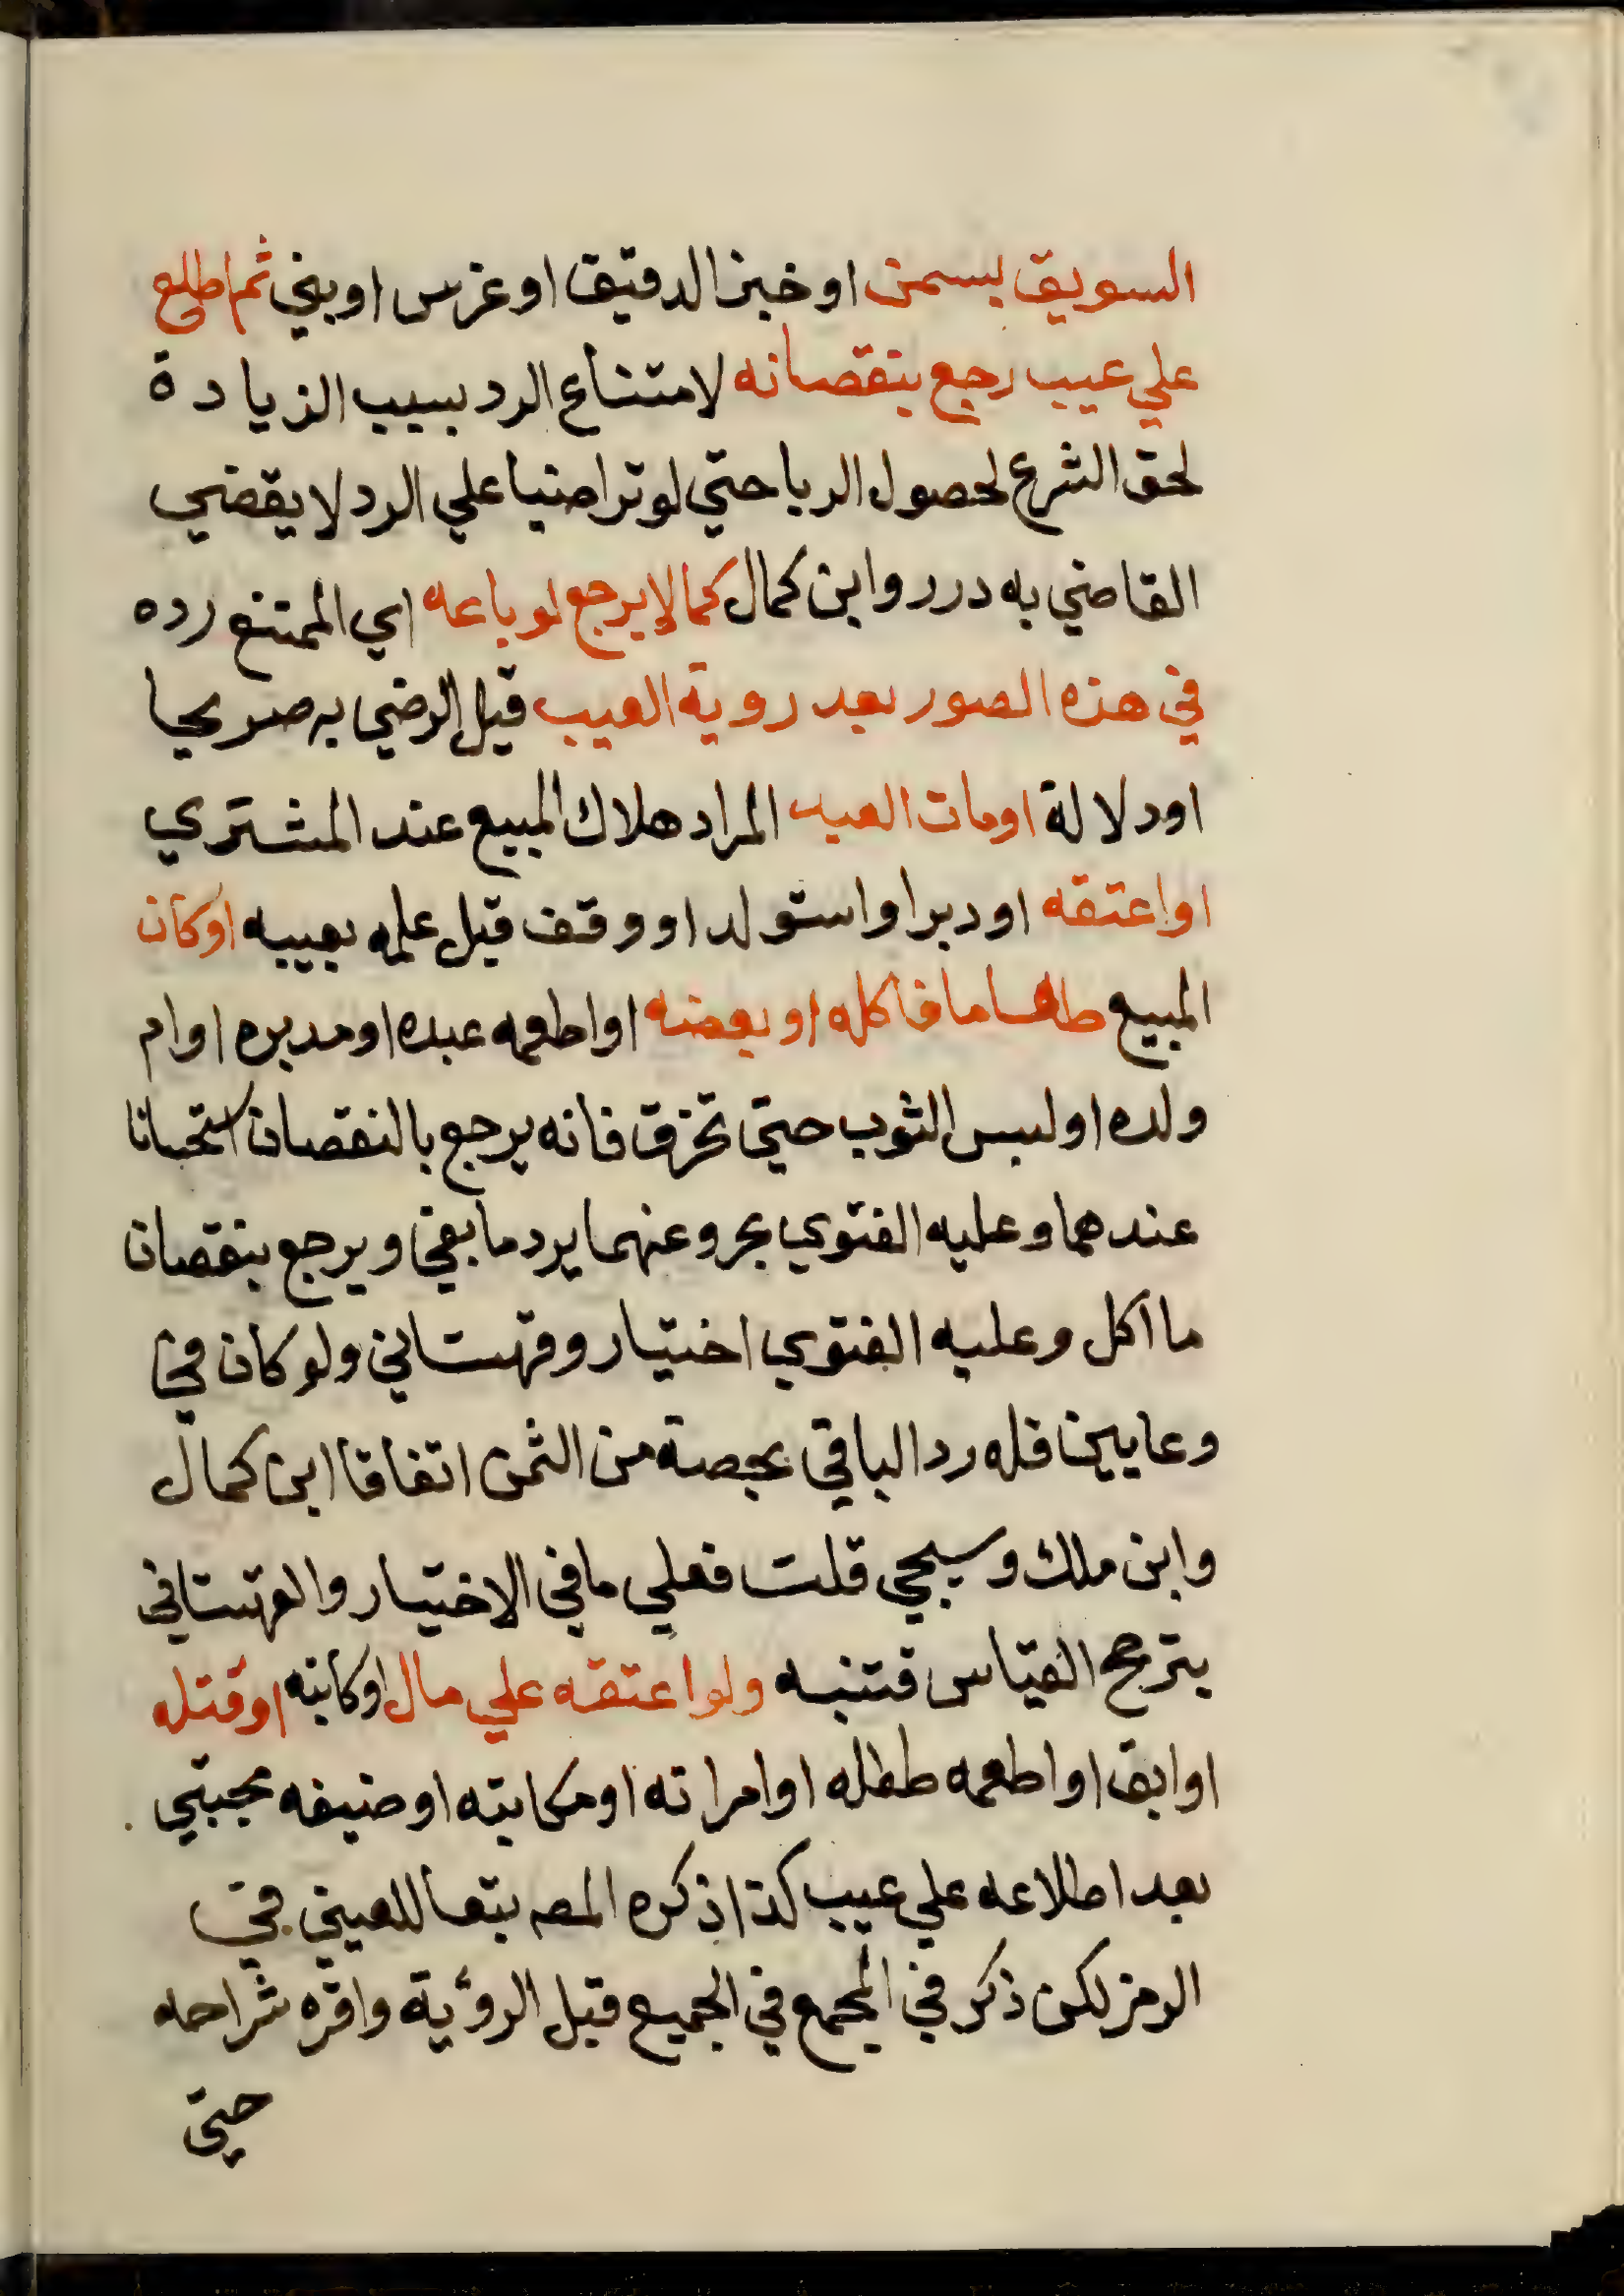 السويق بسمن او خبز الدقيق او غرس او بني ثم اطلع
علي عيب رجع بنقصانه لامتناع الرد بسبب الزيادة
لحق الشرع لحصول الربا حتي لو تراضيا علي الرد لا يقضي
القاضي به درر وابن كمال كما لا يرجع لو باعه اي الممتنع رده
في هذه الصور بعد روية العيب قبل الرضي به صريحا
او دلالة او مات العبد المراد هلاك المبيع عند المشتري
او اعتقه او دبر او استولد او وقف قبل علمه بعيبه او كان
المبيع طعاما فاكله او بعضه او اطعمه عبده او مدبره او ام
ولده او لبس الثوب حتي تخرق فانه يرجع بالنقصان استحسانا
عندهما وعليه الفتوي بحر وعنهما يرد ما بقي ويرجع بنقصان
ما اكل وعليه الفتوي اختيار وقهستاني ولو كان في
وعايين فله رد الباقي بحصته من الثمن اتفاقا ابن كمال
وابن ملك وسيجي قلت فعلي ما في الاختيار والقهستاني
يترجح القياس فتنبه ولو اعتقه علي مال او كاتبه او قتله
او ابق او اطعمه طفله او امراته او مكاتبه او ضيفه مجتبي
بعد اطلاعه علي عيب كذا ذكره المصـ تبعا للعيني في
الرمز لكن ذكر في المجمع في الجميع قبل الرؤية واقره شراحه
حتي